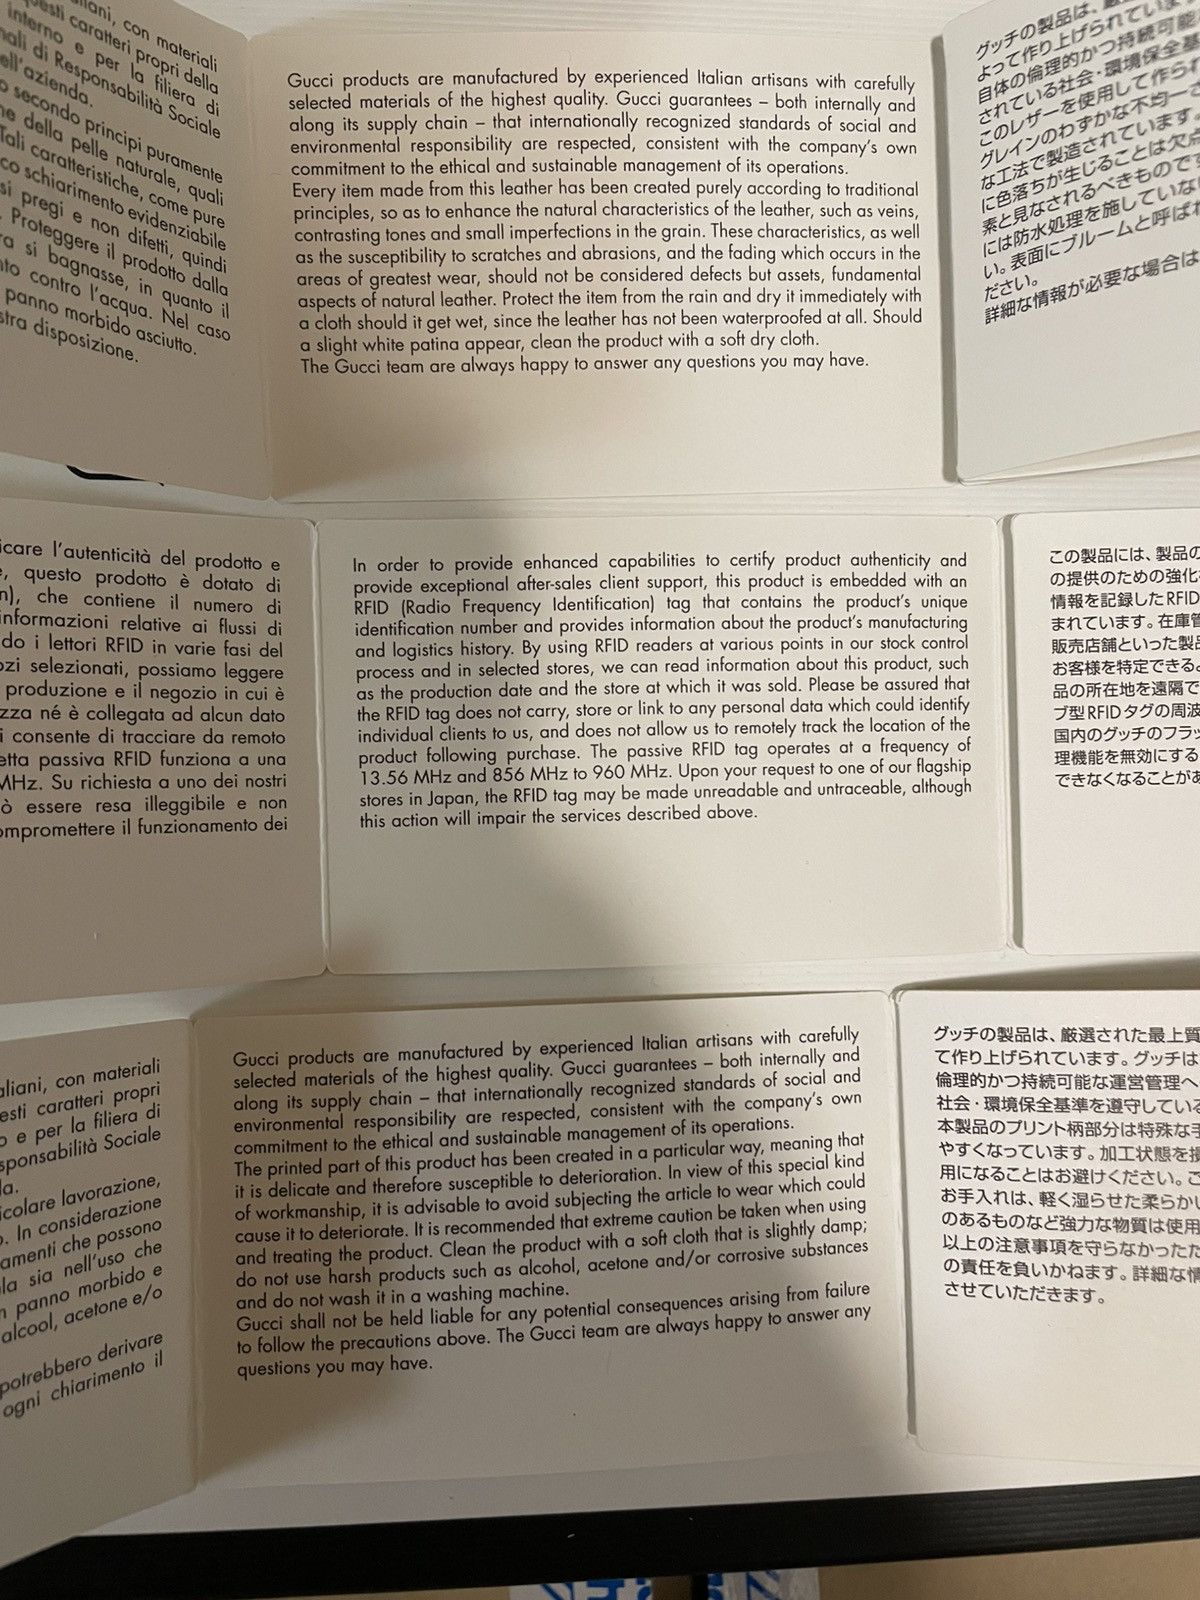 aliani, con materiali
uesti caratteri propri della
interno e per la filiera di
nali di Responsabilità Sociale
ell'azienda.
o secondo principi puramente
ne della pelle naturale, quali
Tali caratteristiche, come pure
co schiarimento evidenziabile
si pregi e non difetti, quindi
. Proteggere il prodotto dalla
ra si bagnasse, in quanto il
nto contro l'acqua. Nel caso
panno morbido asciutto.
stra disposizione.
Gucci products are manufactured by experienced Italian artisans with carefully
selected materials of the highest quality. Gucci guarantees – both internally and
along its supply chain – that internationally recognized standards of social and
environmental responsibility are respected, consistent with the company's own
commitment to the ethical and sustainable management of its operations.
Every item made from this leather has been created purely according to traditional
principles, so as to enhance the natural characteristics of the leather, such as veins,
contrasting tones and small imperfections in the grain. These characteristics, as well
as the susceptibility to scratches and abrasions, and the fading which occurs in the
areas of greatest wear, should not be considered defects but assets, fundamental
aspects of natural leather. Protect the item from the rain and dry it immediately with
a cloth should it get wet, since the leather has not been waterproofed at all. Should
a slight white patina appear, clean the product with a soft dry cloth.
The Gucci team are always happy to answer any questions you may have.
グッチの製品は、厳
よって作り上げられています
自体の倫理的かつ持続可能
されている社会・環境保全基
このレザーを使用して作られ
グレインのわずかな不均一さ
な工法で製造されています。
に色落ちが生じることは欠点
素と見なされるべきもので
には防水処理を施していな
い。表面にブルームと呼ばれ
ださい。
詳細な情報が必要な場合は
icare l'autenticità del prodotto e
e, questo prodotto è dotato di
n), che contiene il numero di
informazioni relative ai flussi di
do i lettori RFID in varie fasi del
ozi selezionati, possiamo leggere
produzione e il negozio in cui è
zza né è collegata ad alcun dato
i consente di tracciare da remoto
etta passiva RFID funziona a una
MHz. Su richiesta a uno dei nostri
ò essere resa illeggibile e non
ompromettere il funzionamento dei
In order to provide enhanced capabilities to certify product authenticity and
provide exceptional after-sales client support, this product is embedded with an
RFID (Radio Frequency Identification) tag that contains the product's unique
identification number and provides information about the product's manufacturing
and logistics history. By using RFID readers at various points in our stock control
process and in selected stores, we can read information about this product, such
as the production date and the store at which it was sold. Please be assured that
the RFID tag does not carry, store or link to any personal data which could identify
individual clients to us, and does not allow us to remotely track the location of the
product following purchase. The passive RFID tag operates at a frequency of
13.56 MHz and 856 MHz to 960 MHz. Upon your request to one of our flagship
stores in Japan, the RFID tag may be made unreadable and untraceable, although
this action will impair the services described above.
この製品には、製品の
の提供のための強化
情報を記録したRFID
まれています。在庫管
販売店舗といった製品
お客様を特定できる
品の所在地を遠隔で
ブ型RFIDタグの周波
国内のグッチのフラッ
理機能を無効にする
できなくなることがあ
aliani, con materiali
esti caratteri propri
o e per la filiera di
sponsabilità Sociale
la.
icolare lavorazione,
o. In considerazione
amenti che possono
la sia nell'uso che
n panno morbido e
alcool, acetone e/o
potrebbero derivare
ogni chiarimento il
Gucci products are manufactured by experienced Italian artisans with carefully
selected materials of the highest quality. Gucci guarantees – both internally and
along its supply chain – that internationally recognized standards of social and
environmental responsibility are respected, consistent with the company's own
commitment to the ethical and sustainable management of its operations.
The printed part of this product has been created in a particular way, meaning that
it is delicate and therefore susceptible to deterioration. In view of this special kind
of workmanship, it is advisable to avoid subjecting the article to wear which could
cause it to deteriorate. It is recommended that extreme caution be taken when using
and treating the product. Clean the product with a soft cloth that is slightly damp;
do not use harsh products such as alcohol, acetone and/or corrosive substances
and do not wash it in a washing machine.
Gucci shall not be held liable for any potential consequences arising from failure
to follow the precautions above. The Gucci team are always happy to answer any
questions you may have.
グッチの製品は、厳選された最上質
て作り上げられています。グッチは
倫理的かつ持続可能な運営管理へ
社会・環境保全基準を遵守している
本製品のプリント柄部分は特殊な手
やすくなっています。加工状態を損
用になることはお避けください。こ
お手入れは、軽く湿らせた柔らかい
のあるものなど強力な物質は使用
以上の注意事項を守らなかったた
の責任を負いかねます。詳細な情
させていただきます。